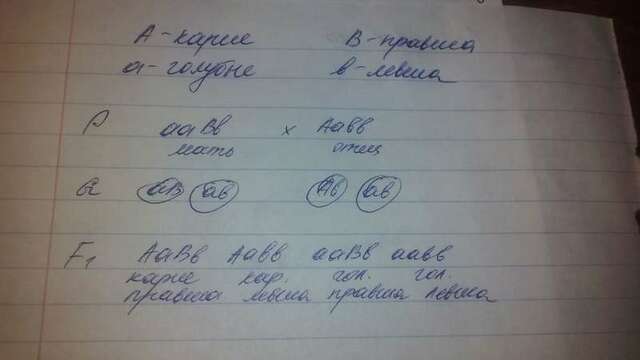 А - карие В - правша
а - голубые в - левша
Р ааВв х Аавв
мать отец
G аВ ав Ав ав
F1 АаВв Аавв ааВв аавв
карие кар. гол. гол.
правша левша правша левша